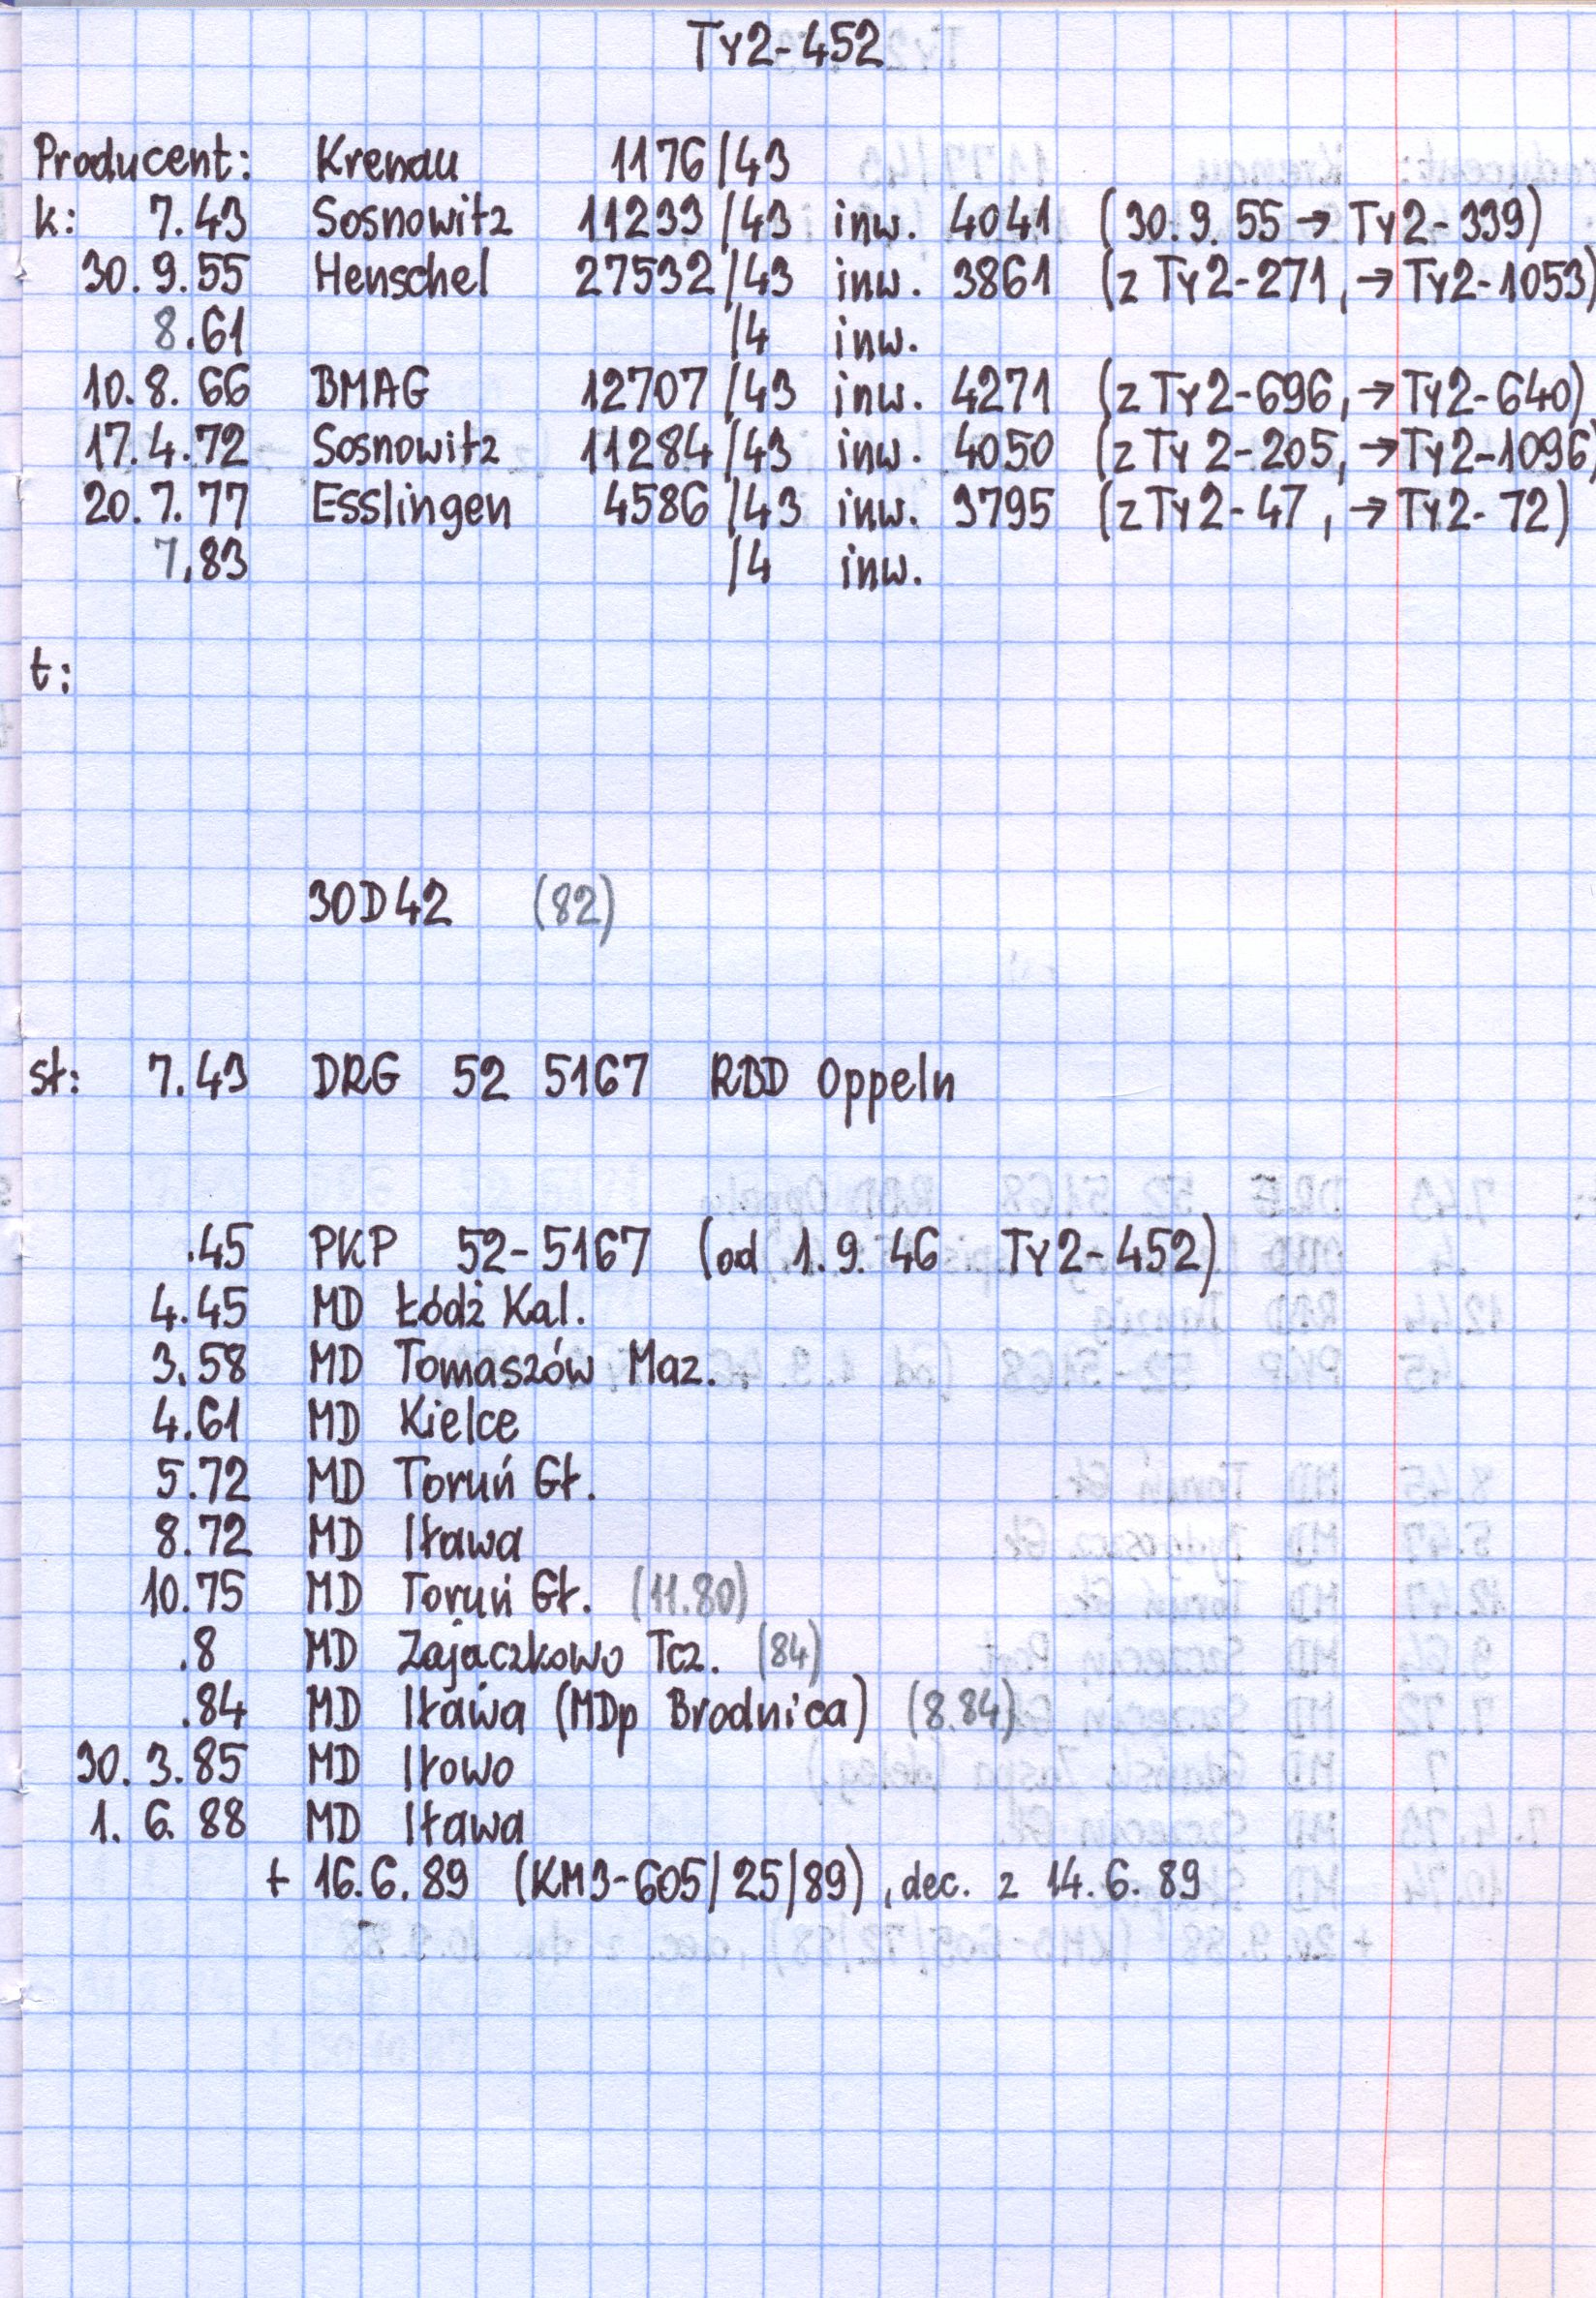 Ty2-452
Producent: Krenau 1176/43
k: 7.43 Sosnowitz 11233/43 inw. 4041 (30.9.55 → Ty2-339)
30.9.55 Henschel 27532/43 inw. 3861 (z Ty2-271, → Ty2-1053)
8.61 /4 inw.
10.8.66 BMAG 12707/43 inw. 4271 (z Ty2-696, → Ty2-640)
17.4.72 Sosnowitz 11284/43 inw. 4050 (z Ty2-205, → Ty2-1096)
20.7.77 Esslingen 4586/43 inw. 3795 (z Ty2-47, → Ty2-72)
7.83 /4 inw.
t:
30D42 (82)
st: 7.43 DRG 52 5167 RBD Oppeln
.45 PKP 52-5167 (od 1.9.46 Ty2-452)
4.45 MD Łódź Kal.
3.58 MD Tomaszów Maz.
4.61 MD Kielce
5.72 MD Toruń Gł.
8.72 MD Iława
10.75 MD Toruń Gł. (11.80)
.8 MD Zajączkowo Tcz. (84)
.84 MD Iława (MDp Brodnica) (8.84)
30.3.85 MD Iłowo
1.6.88 MD Iława
+ 16.6.89 (KM3-605/25/89), dec. z 14.6.89